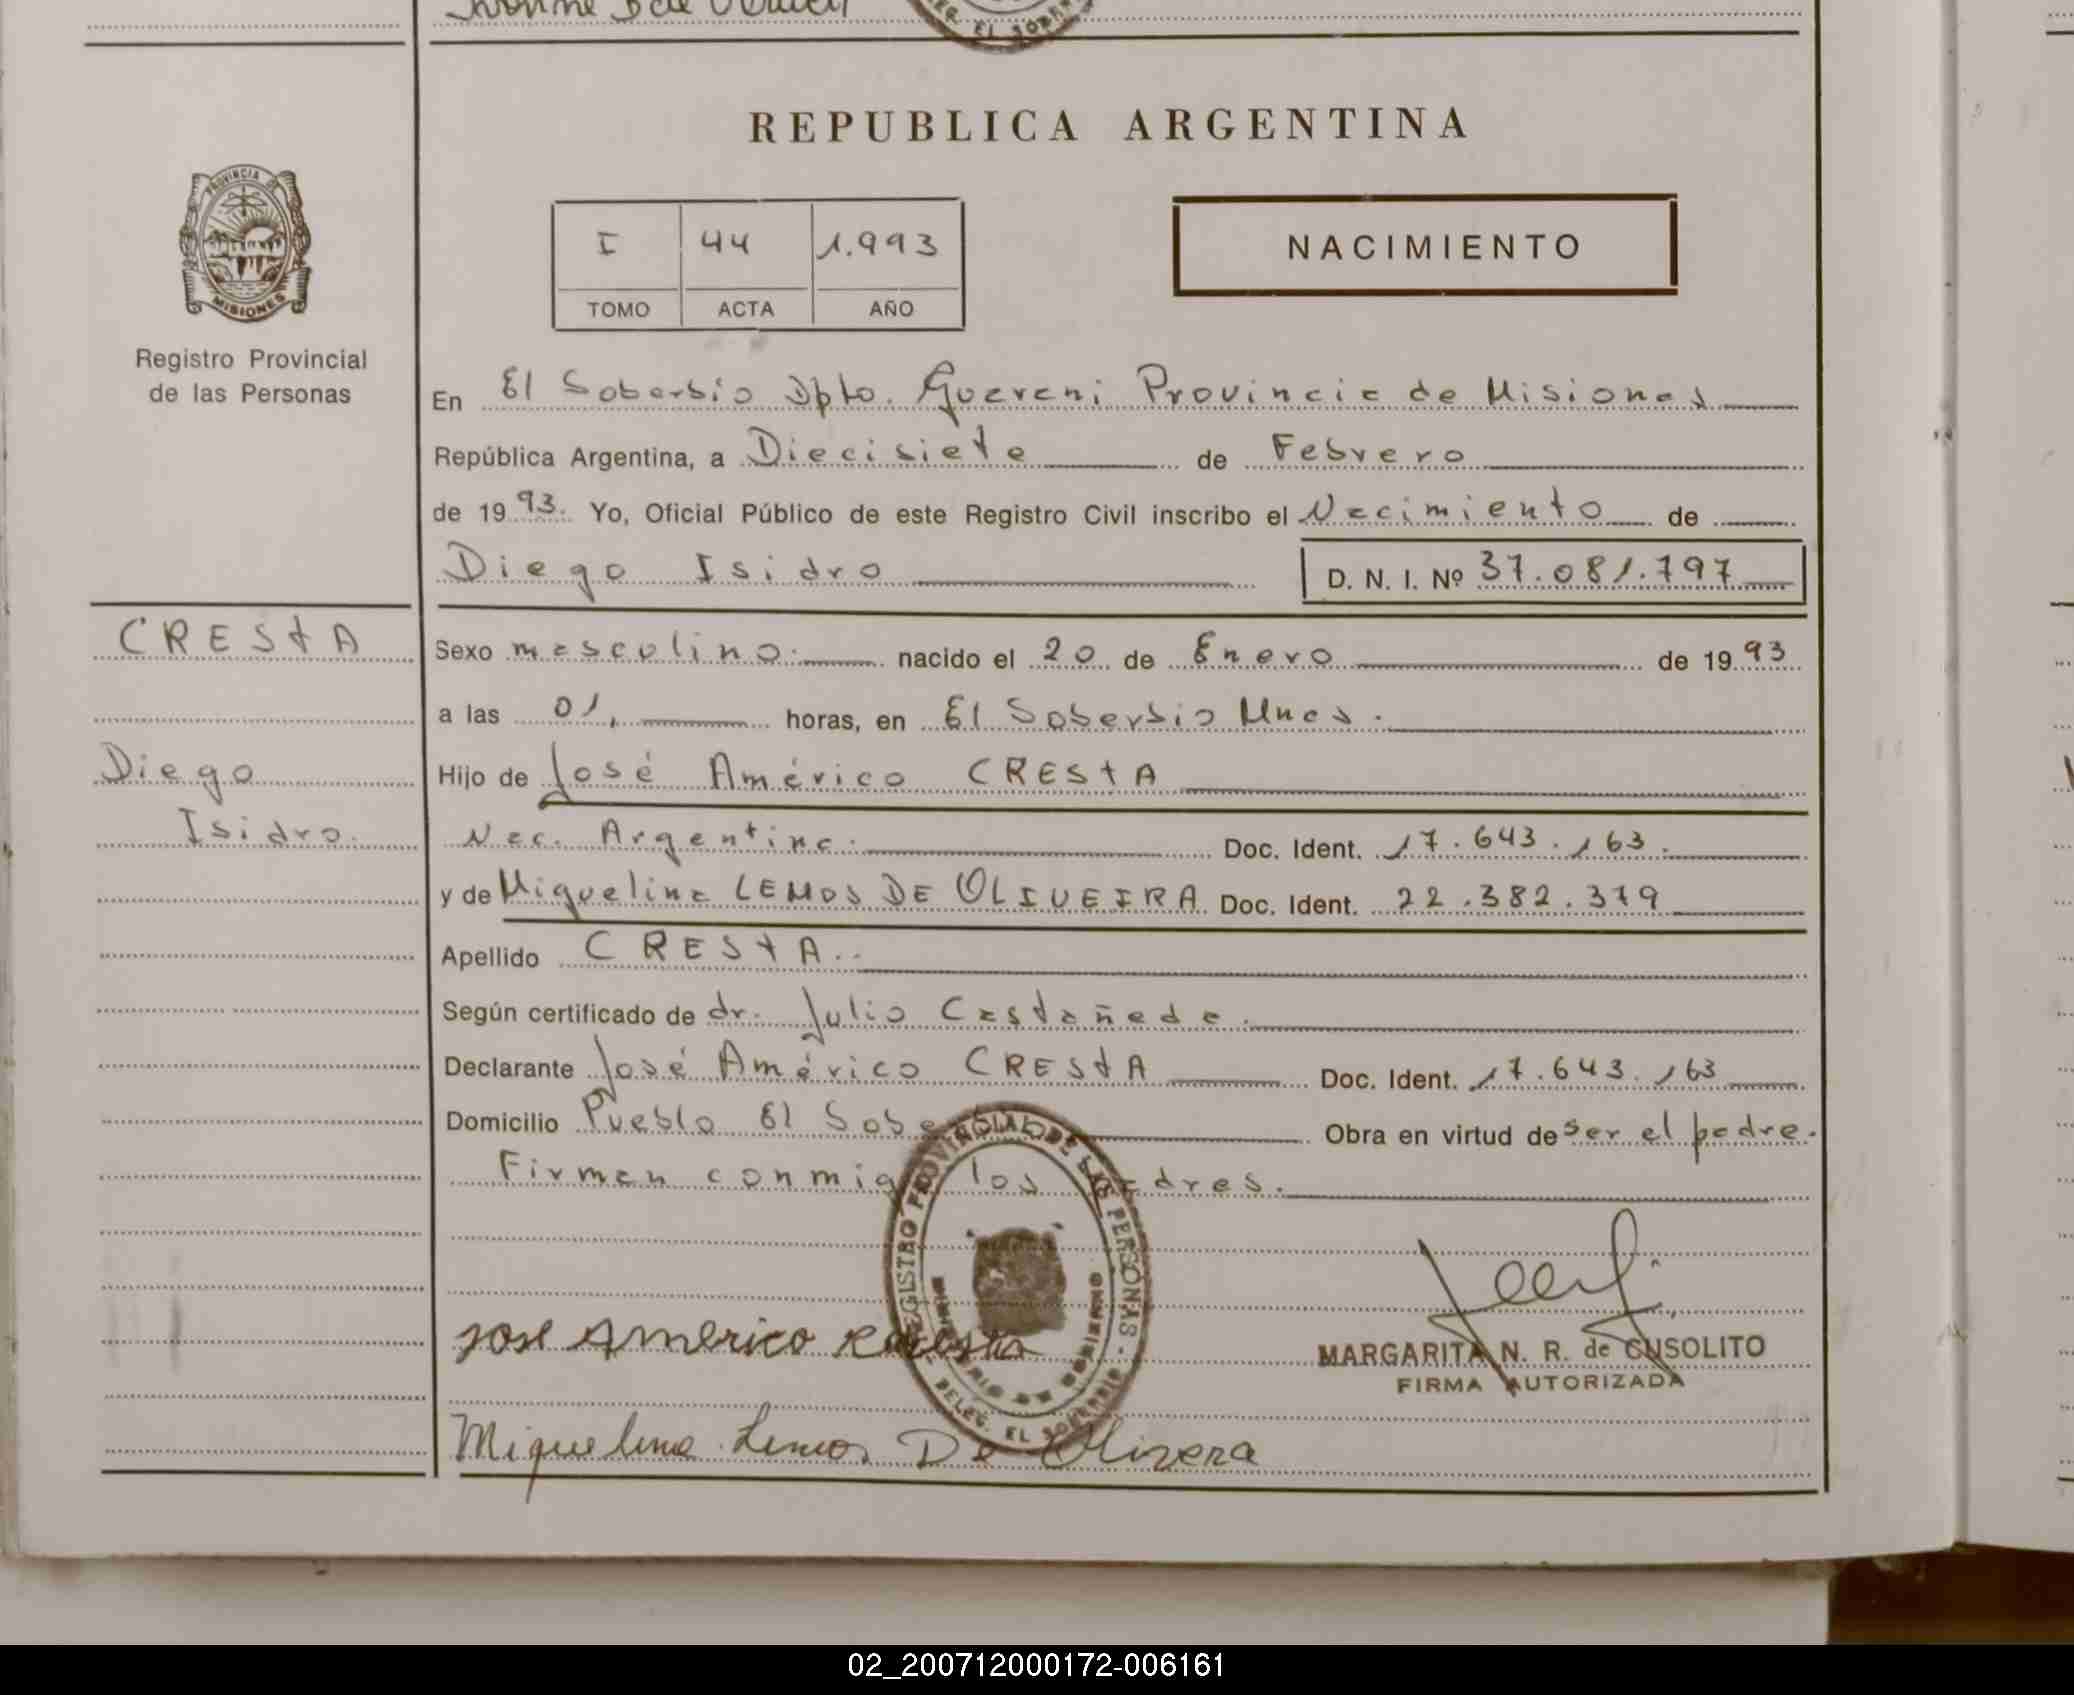 EG. EL SOBER
REPUBLICA ARGENTINA
PROVINCIA DE
MISIONES
Registro Provincial
de las Personas
I 44 1.993
TOMO ACTA AÑO
NACIMIENTO
En El Soberbio Dpto. Guarani Provincia de Misiones
República Argentina, a Diecisiete de Febrero
de 19 93. Yo, Oficial Público de este Registro Civil inscribo el Nacimiento de
Diego Isidro D. N. I. Nº 37.081.797
CRESTA
Diego
Isidro.
Sexo masculino. nacido el 20 de Enero de 19 93
a las 01, horas, en El Soberbio Mnes.
Hijo de José Américo CRESTA
Nac. Argentina. Doc. Ident. 17.643.163.
y de Miguelina LEMOS DE OLIVEIRA Doc. Ident. 22.382.379
Apellido CRESTA..
Según certificado de dr. Julio Castañeda.
Declarante José Américo CRESTA Doc. Ident. 17.643.163
Domicilio Pueblo El Sobe Obra en virtud de ser el padre.
Firman conmigo los padres.
REGISTRO PROVINCIAL DE LAS PERSONAS
DELEG. EL SOBERBIO
Jose Americo
MARGARITA N. R. de CUSOLITO
FIRMA AUTORIZADA
Miguelina Lemos De Olivera
02_200712000172-006161